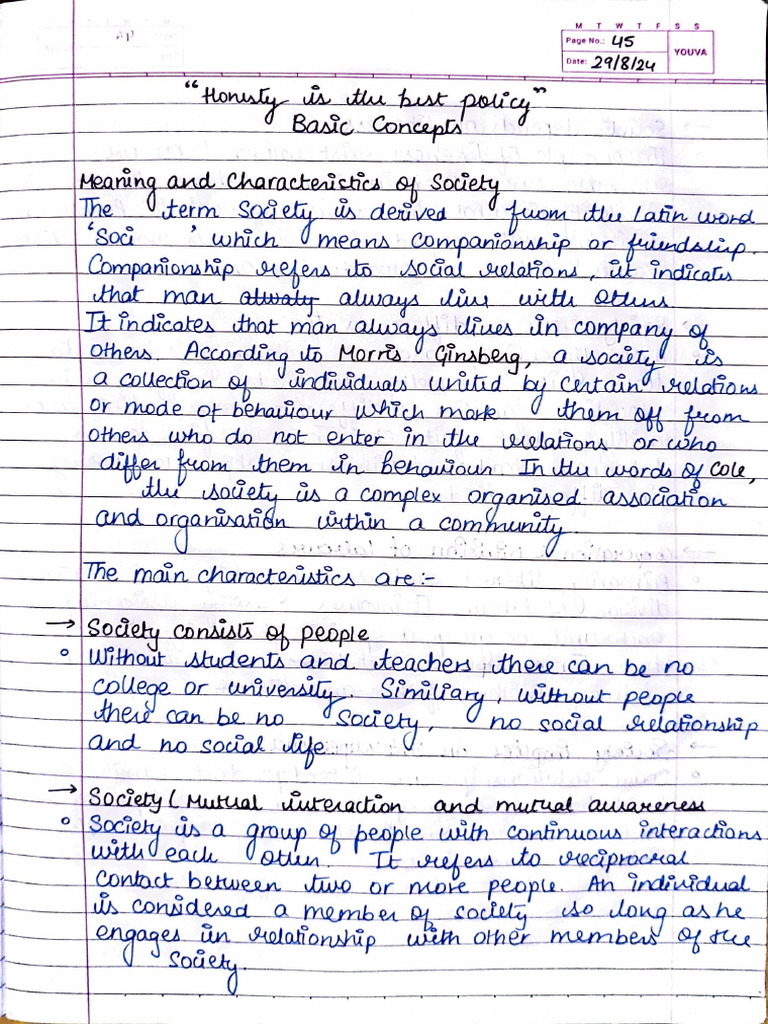 M T W T F S S
Page No.: 45
YOUVA
Date: 29/8/24
"Honesty is the best policy"
Basic Concepts
Meaning and Characteristics of Society
The term Society is derived from the Latin word
'Soci ' which means companionship or friendship.
Companionship refers to social relations, it indicates
that man always live with others.
It indicates that man always lives in company of
others. According to Morris Ginsberg, a society is
a collection of individuals united by certain relations
or mode of behaviour which mark them off from
others who do not enter in the relations or who
differ from them in behaviour. In the words of Cole,
the society is a complex organised association
and organisation within a community.
The main characteristics are:-
→ Society consists of people
° Without students and teachers, there can be no
college or university. Similiary, without people
there can be no Society, no social relationship
and no social life.
→ Society (Mutual interaction and mutual awareness
° Society is a group of people with continuous interactions
with each other. It refers to reciprocral
contact between two or more people. An individual
is considered a member of society so long as he
engages in relationship with other members of the
Society.